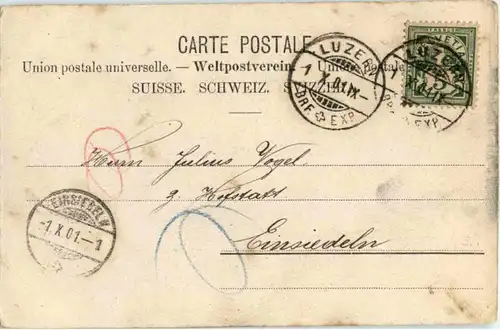 CARTE POSTALE
Union postale universelle. — Weltpostverein. — Unione Postale
SUISSE. SCHWEIZ. SVIZZERA
LUZERN
1 X.01.IX-
BRF. EXP.
LUZERN
HELVETIA
5
Herrn Julius Vogel
z. Hofstatt
Einsiedeln
EINSIEDELN
-1.X.01.-1